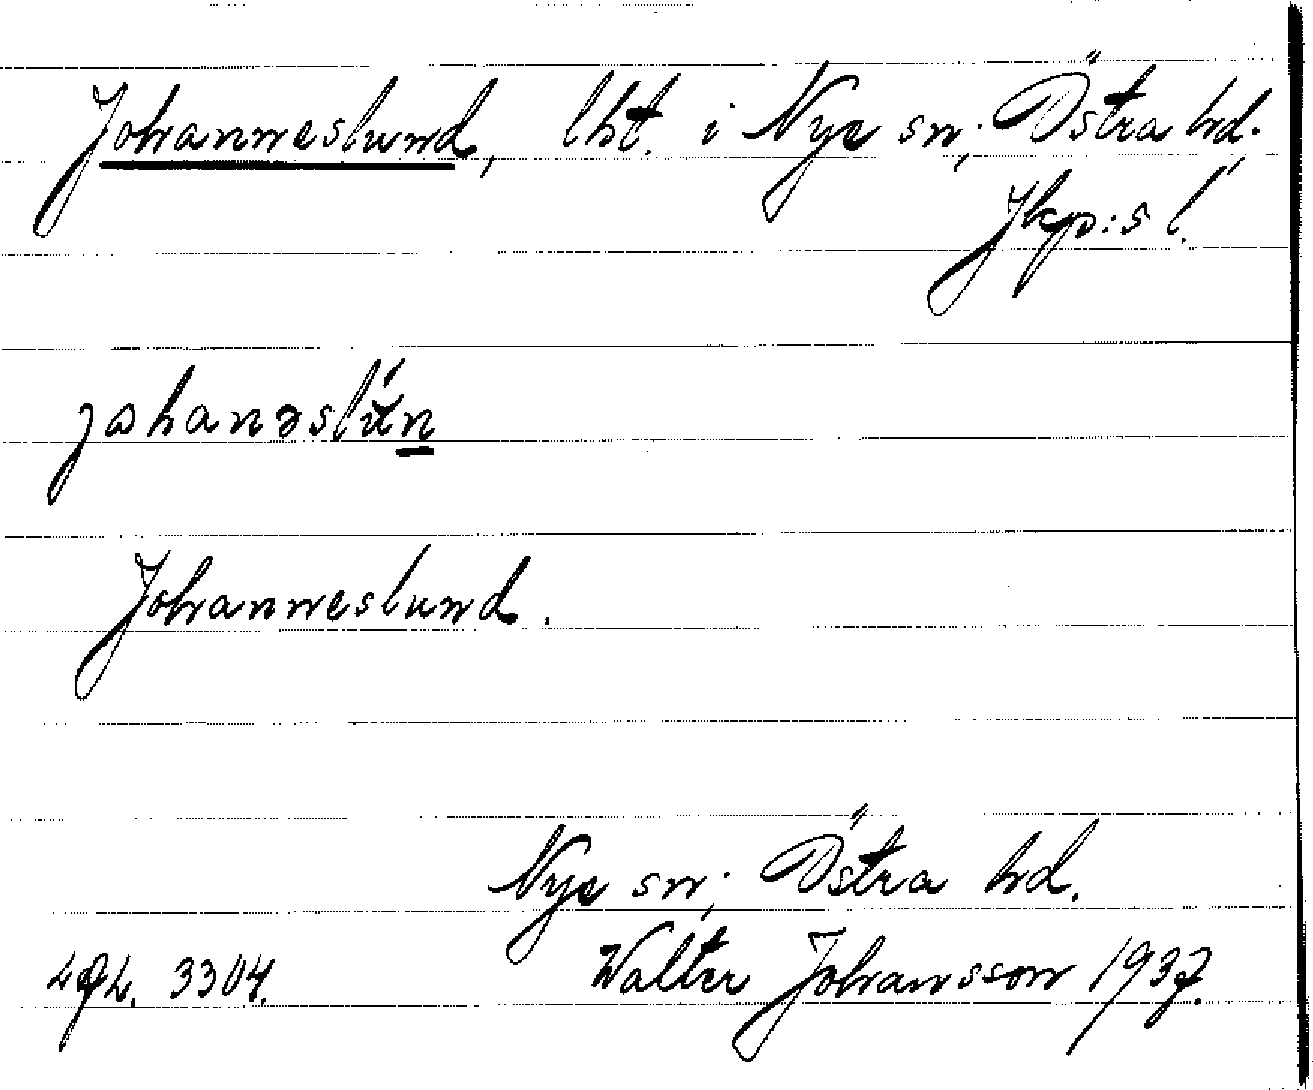 Johanneslund, lht. i Nye sn; Östra hd.
Jkp:s l.
Johanneslund.
Nye sn; Östra hd.
3304. Walter Johansson 1937.